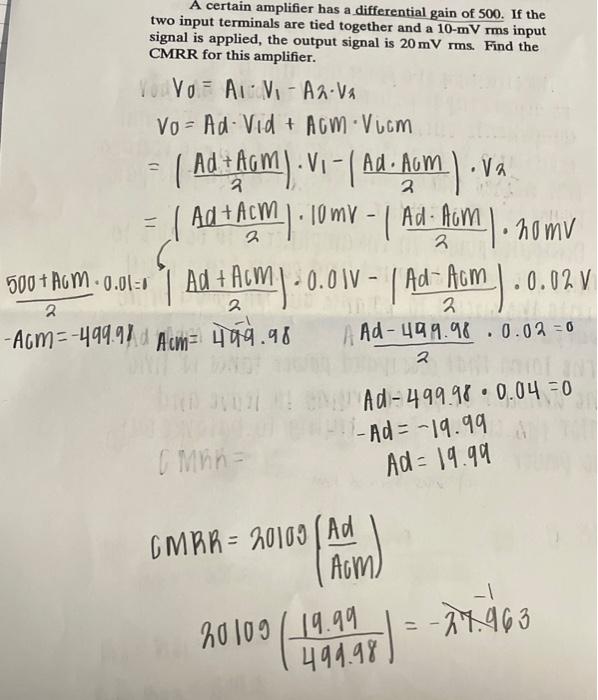 A certain amplifier has a differential gain of 500. If the
two input terminals are tied together and a 10-mV rms input
signal is applied, the output signal is 20 mV rms. Find the
CMRR for this amplifier.
Vo = A1·V1 - A2·V2
Vo = Ad·Vid + Acm·Vicm
= (Ad+Acm/2)·V1 - (Ad·Acm/2)·V2
= (Ad+Acm/2)·10mV - (Ad·Acm/2)·20mV
500+Acm/2 · 0.01=0 (Ad+Acm/2)·0.01V - (Ad-Acm/2)·0.02V
-Acm=-499.98 Acm= 499.98 -1 Ad-499.98/2 · 0.02=0
Ad-499.98·0.04=0
-Ad=-19.99
CMRR= Ad=19.99
CMRR=20log(Ad/Acm)
20log(19.99/499.98)=-27.963 -1